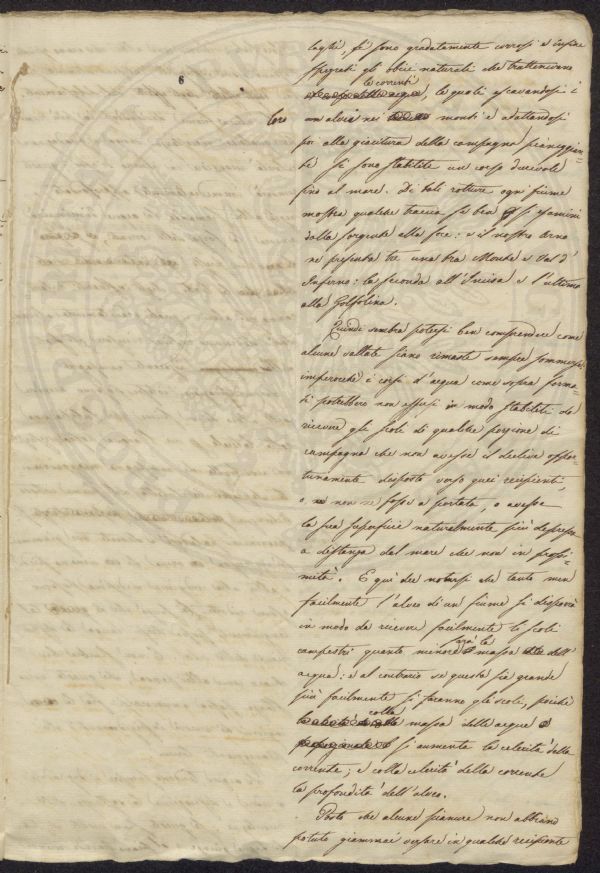 6
laghi, si sono gradatamente corrosi e infine
spezzati gli obici naturali che trattenevano
le correnti
, le quali scavandosi i
loro
un alveo nei monti e adattandosi
poi alla giacitura della campagna pianeggian-
te si sono stabilite un corso durevole
fino al mare. Di tali rotture ogni fiume
mostra qualche traccia se ben si esamini
dalla sorgente alla foce: e il nostro Arno
ne presenta tre una tra Monte e Val d'
Inferno: la seconda all'Incisa e l'ultima
alla Golfolina.
Quindi sembra potersi ben comprendere come
alcune vallate siano rimaste sempre sommerse:
imperocché i corsi d'acqua come sopra forma-
ti potrebbero non essersi in modo stabiliti da
ricevere gli scoli di qualche porzione di
campagna che non avesse il declive oppor-
tunamente disposto verso quei recipienti,
o non ne fosse a portata, o avesse
la sua superficie naturalmente più depressa
a distanza del mare che non in prossi-
mità. E qui dee notarsi che tanto men
facilmente l'alveo di un fiume si disporrà
in modo da ricevere facilmente gli scoli
sarà la
campestri quanto minore massa dell'
acqua: e al contrario se questa sia grande
più facilmente si faranno gli scoli, poiché
colla
massa delle acque
si aumenta la celerità della
corrente; e colla celerità della corrente
la profondità dell'alveo.
Posto che alcune pianure non abbiano
potuto giammai versare in qualche recipiente